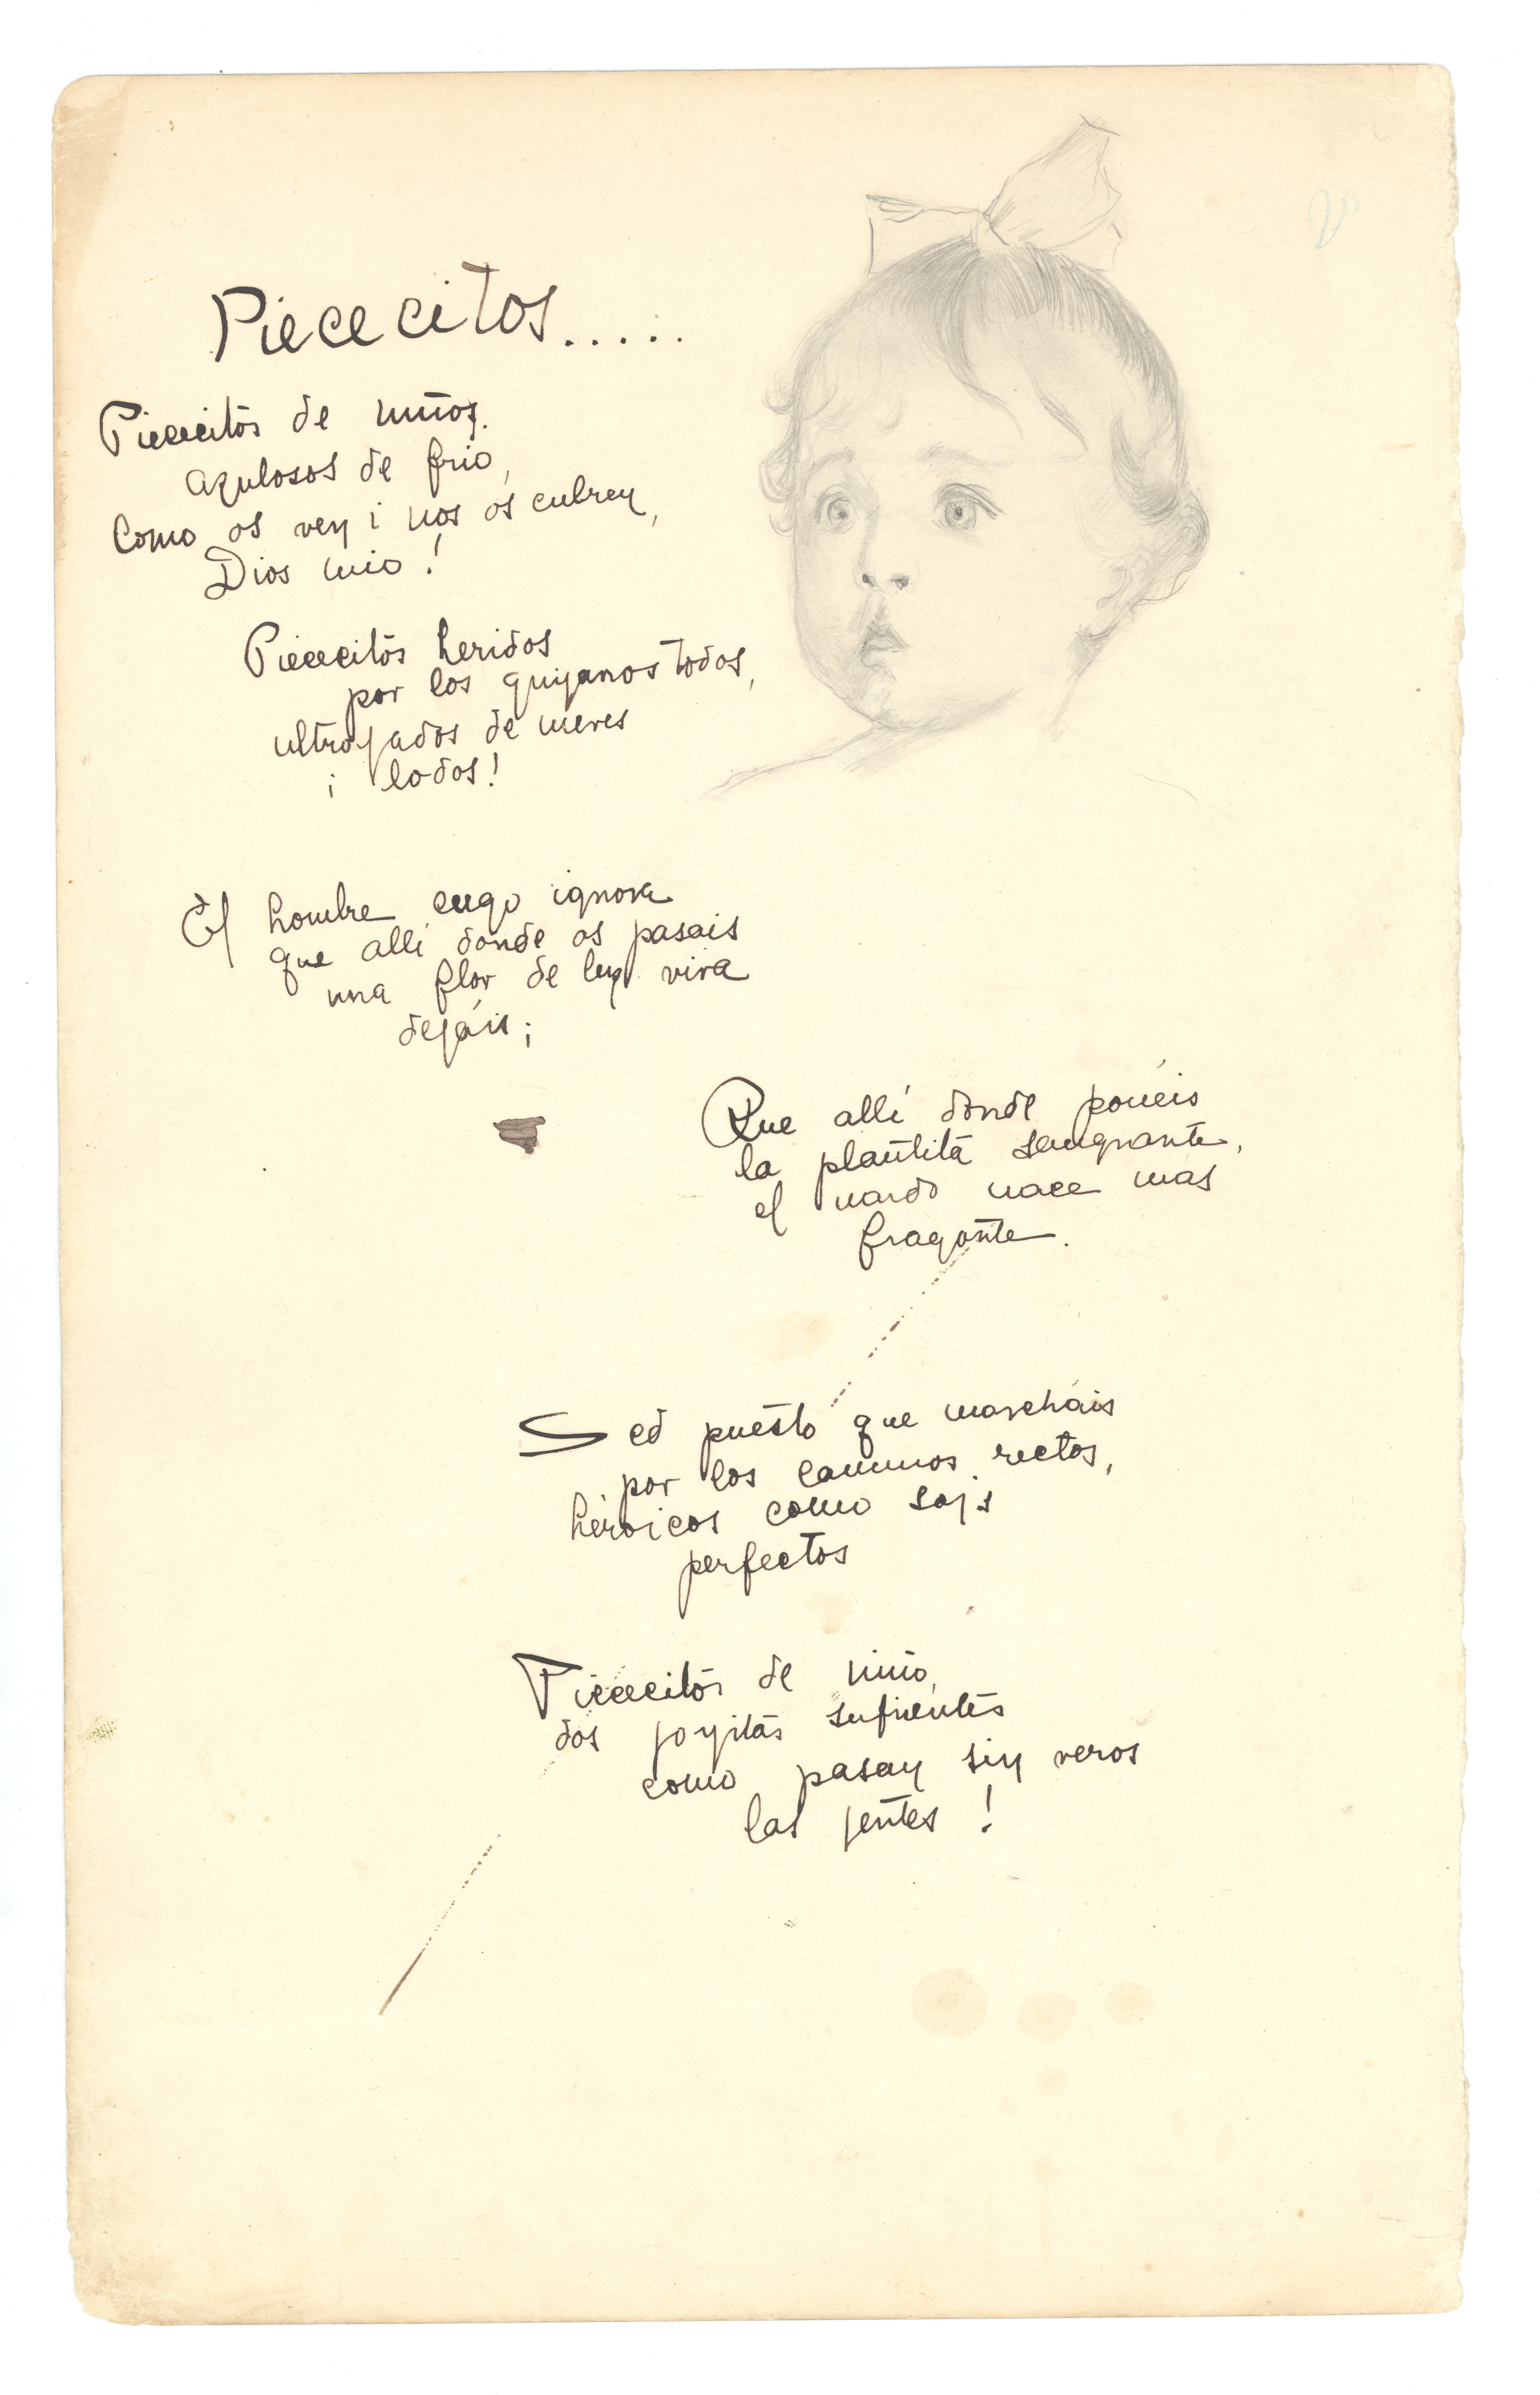 Piececitos.....
Piececitos de niños.
azulosos de frio,
Como os ven i nos os cubren,
Dios mio!
Piececitos heridos
por los guijarros todos,
ultrajados de nieves
i lodos!
El hombre ciego ignora
que allí donde os pasais
una flor de luz viva
dejáis;
Que allí donde ponéis
la plantita sangrante,
el nardo nace mas
fragante.
Sed puesto que marcháis
por los caminos rectos,
héroicos como sois
perfectos
Piececitos de niño,
dos joyitas sufrientes
como pasan sin veros
las jentes!
20